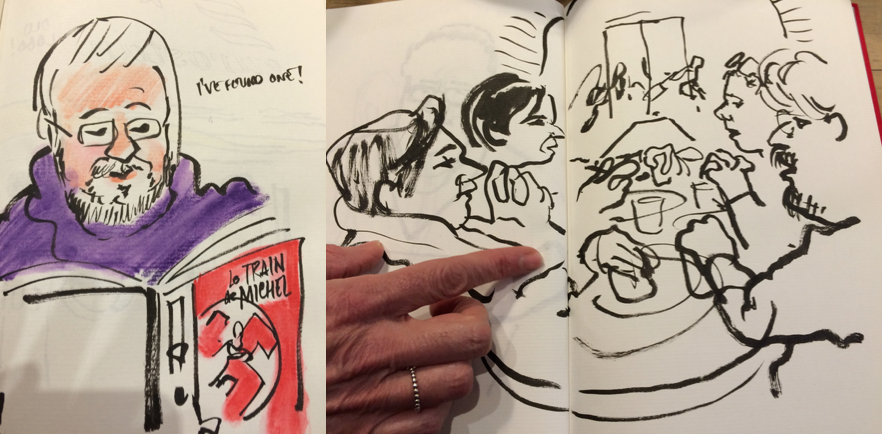 I'VE FOUND ONE!
Le TRAIN
de MICHEL